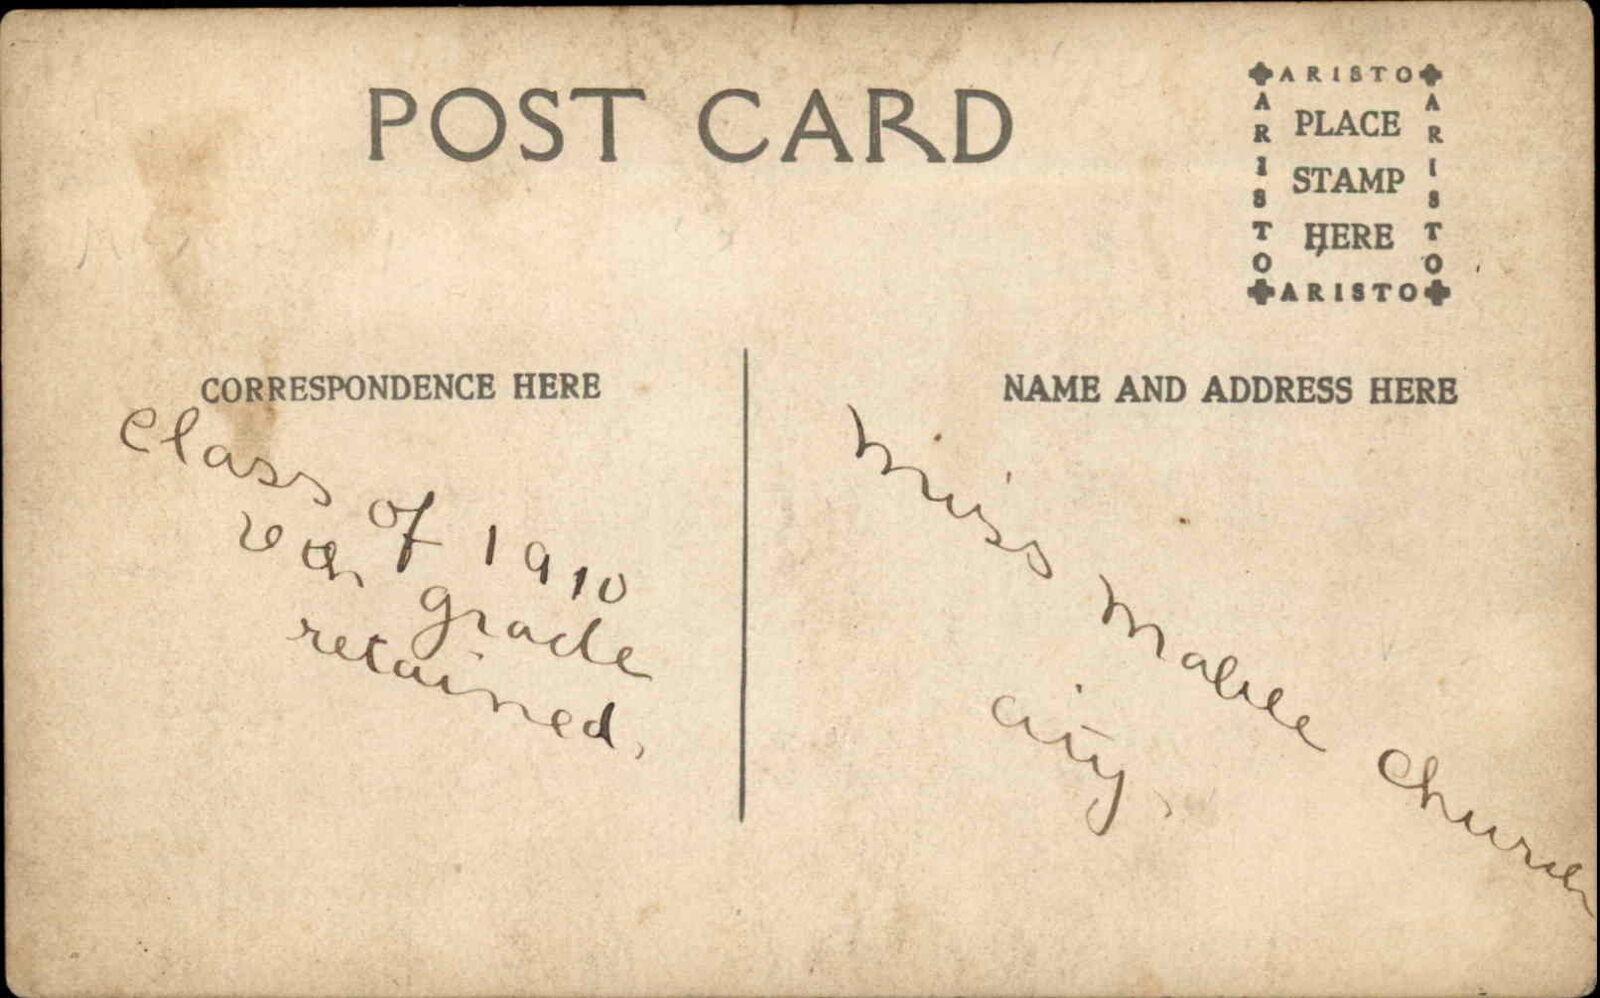 POST CARD
ARISTO
ARISTO
ARISTO
PLACE
STAMP
HERE
ARISTO
CORRESPONDENCE HERE
NAME AND ADDRESS HERE
Class of 1910
grade
retained.
Miss Mabel Church
City.